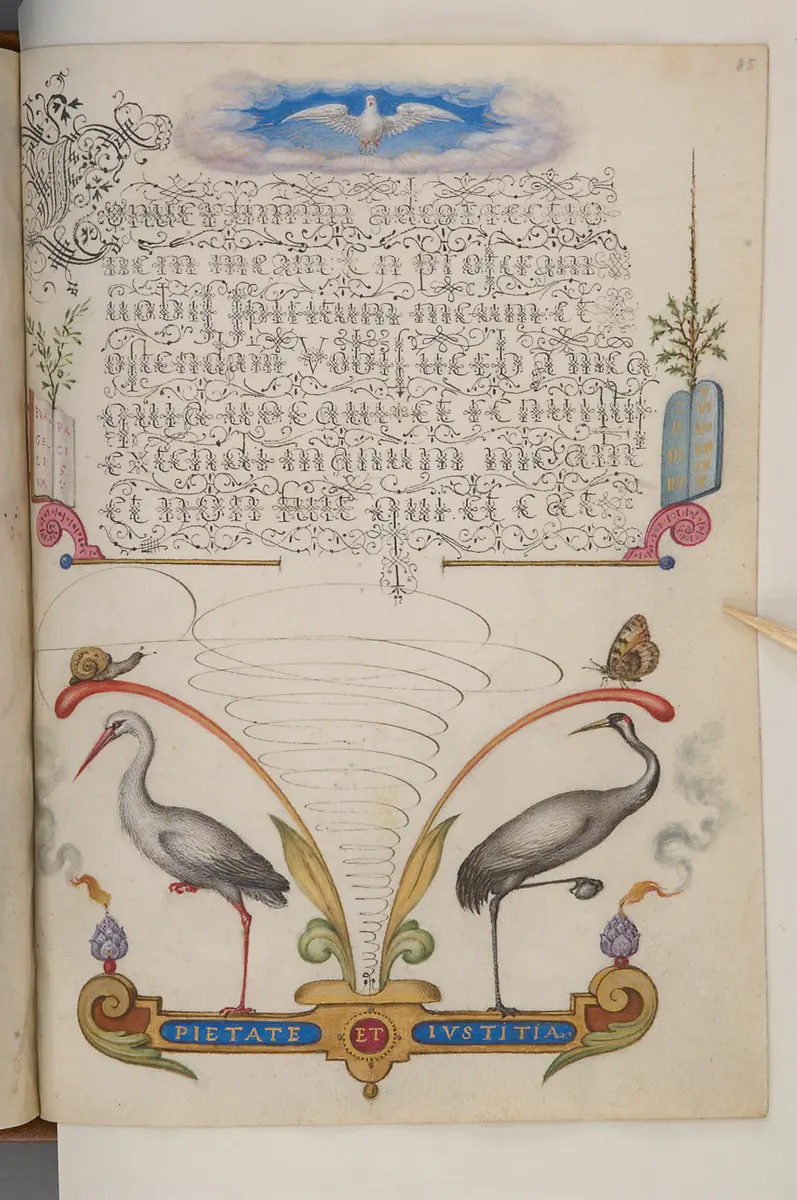 85
COnuertimini ad correctio
nem meam: En proferam
uobis spiritum meum: et
ostendam vobis uerba mea
quia uocaui et renuisti
extendi manum meam
et non fuit qui. et cæt.
EVAN
GE
LI
VM
PA
CI
S.
PIETATE ET IVSTITIA.